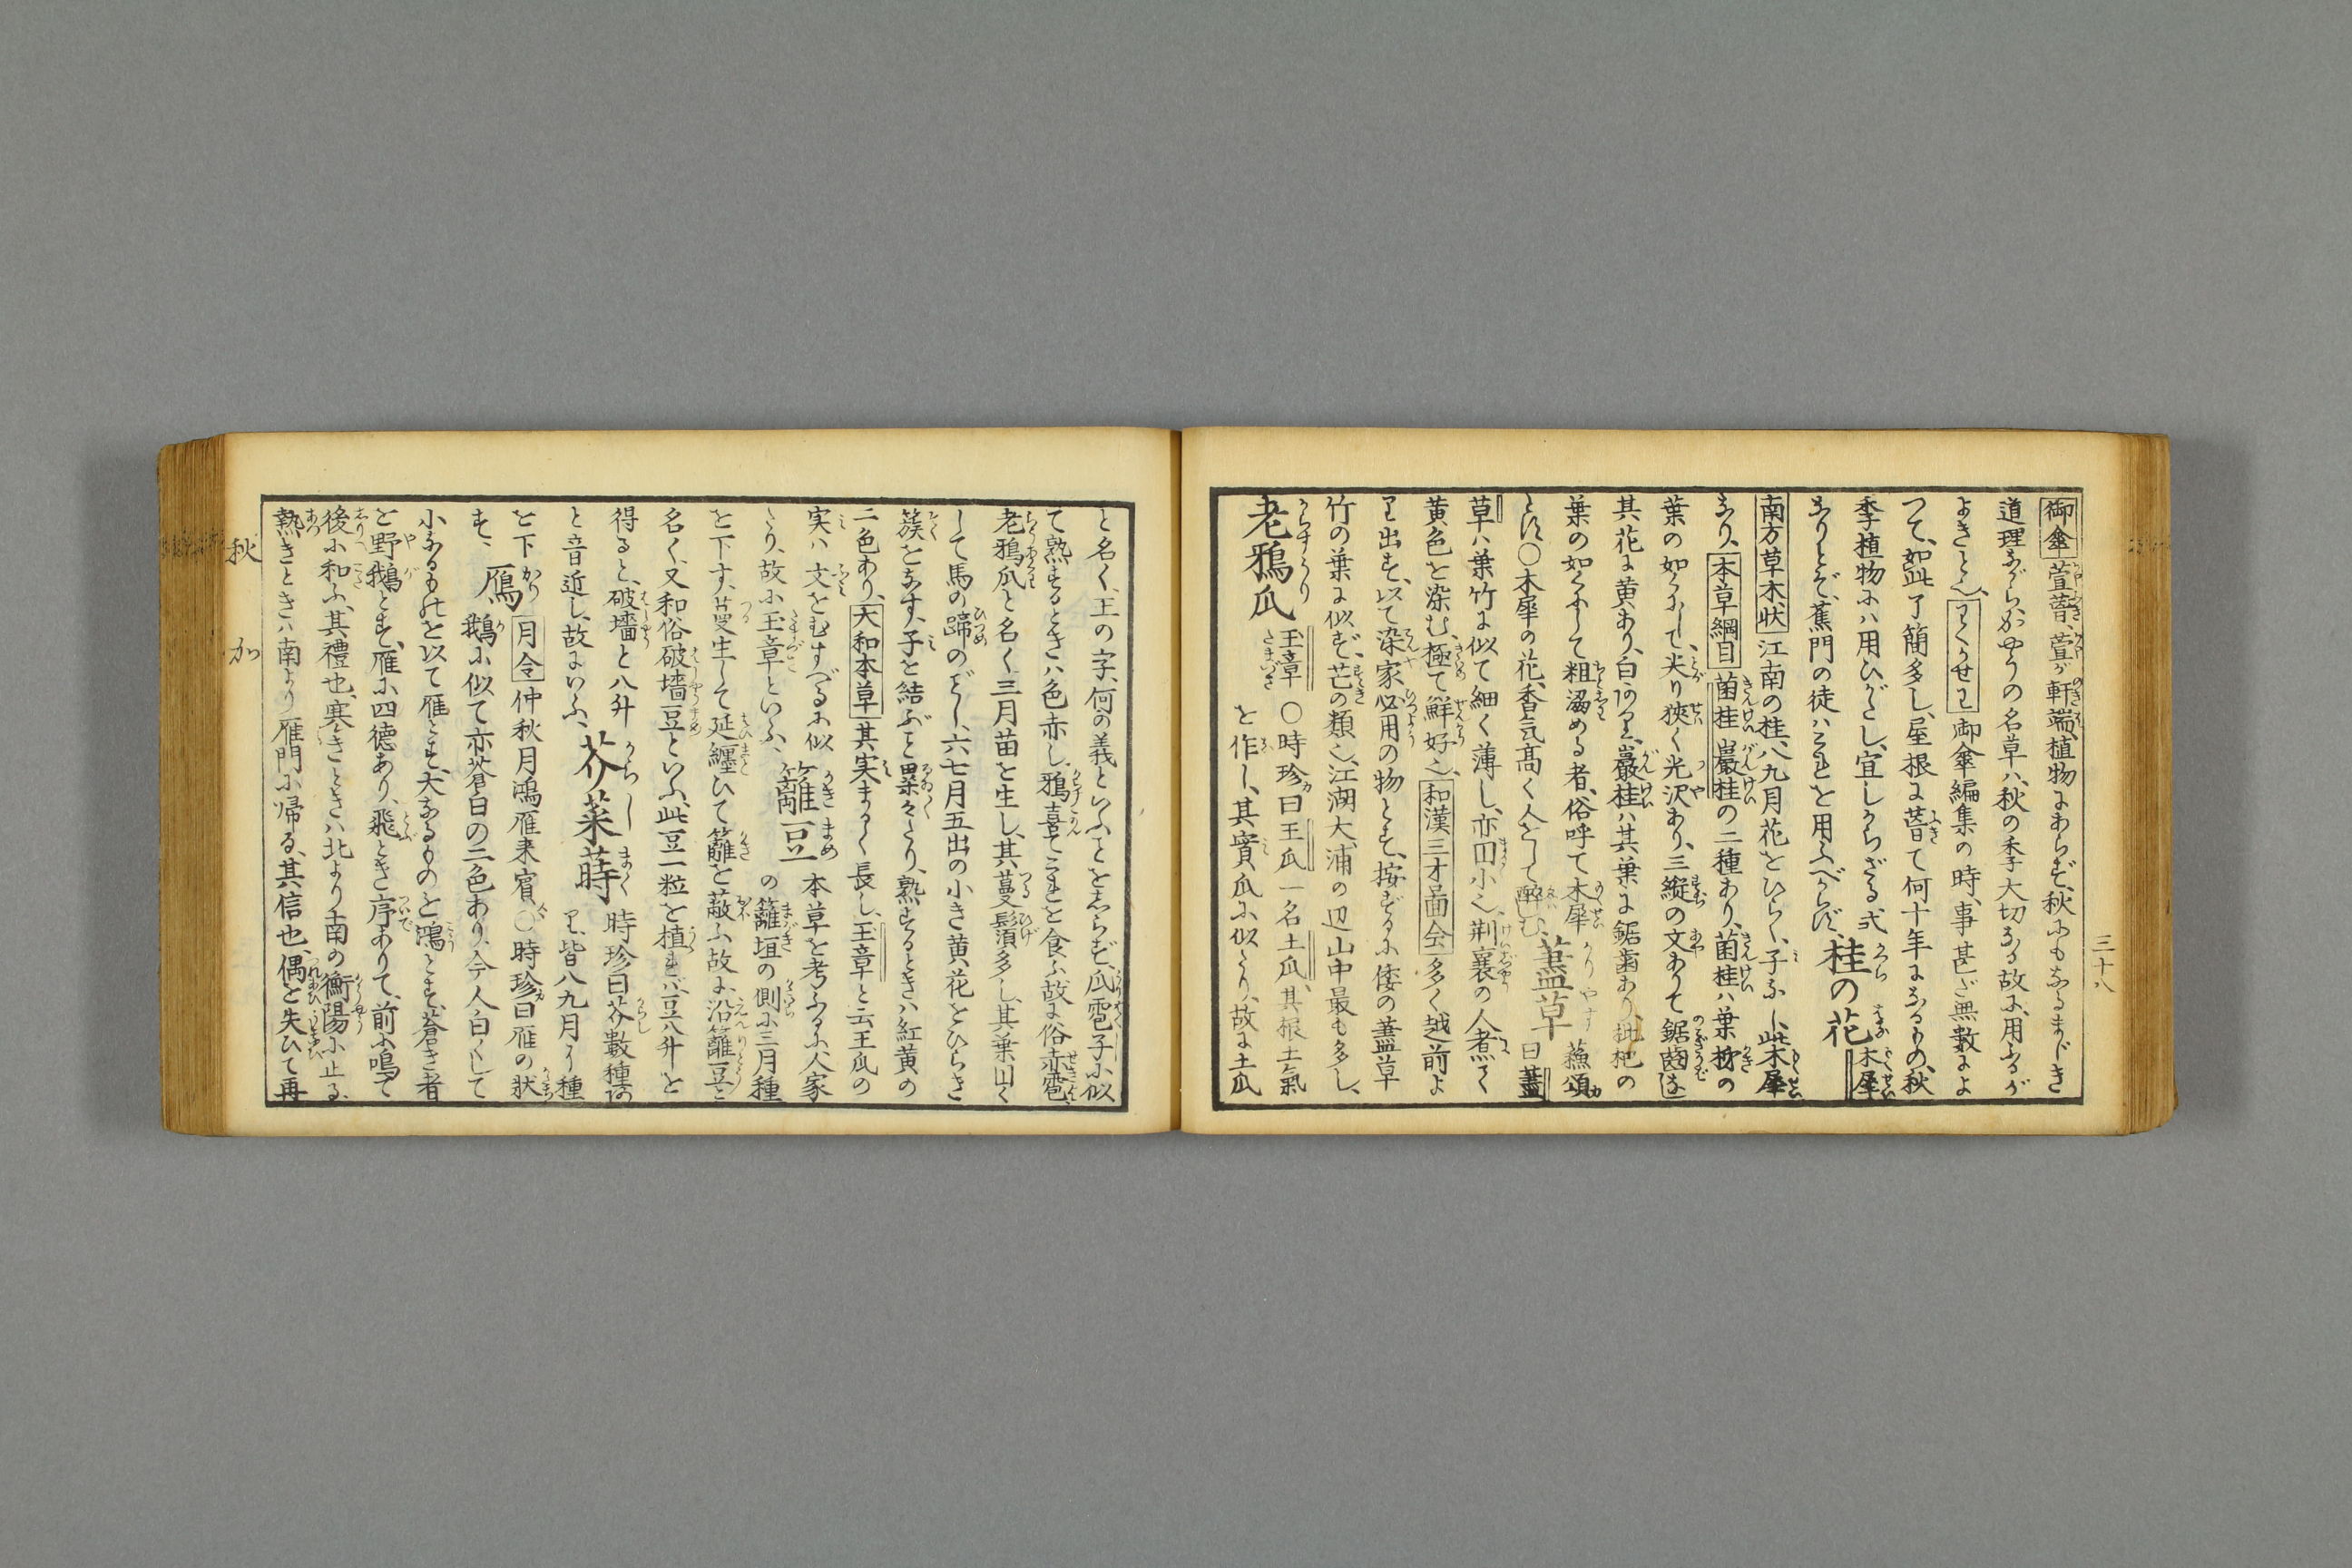 三十八
御傘 萱葺、萱が軒端、植物にあらず、秋にもなるまじき
道理ながら、かやうの名草ハ、秋の季大切なる故に、用ふるが
よきと也、 御傘編集の時、事甚だ無數によ
つて、如此了簡多し、屋根に葺て何十年になるもの、秋
季植物にハ用ひがたし、宜しからざる式
なりとぞ、蕉門の徒ハこれを用ふべからず、 桂の花 木犀
南方草木状 江南の桂、八九月花をひらく、子なし、此木犀
なり、 本草綱目 菌桂巖桂の二種あり、菌桂ハ葉柹の
葉の如くにして、尖り狹く光沢あり、三縱の文ありて鋸齒
其花に黄あり、白あり、巖桂ハ其葉に鋸歯あり、枇杷の
葉の如くにして粗澀める者、俗呼て木犀
とす、〇木犀の花、香気高く人をして醉しむ、 藎草 蘓頌曰藎
草ハ葉竹に似て細く薄し、亦円小也、荆襄の人煮て
黄色を染む、極て鮮好也、 和漢三才圖会 多く越前よ
り出す、以て染家必用の物とす、按ずるに倭の藎草
竹の葉に似ず、芒の類也、江湖大浦の辺山中最も多し、
老鴉瓜 王章 〇時珍曰王瓜一名土瓜、其根土氣
を作し、其實瓜に似たり、故に土瓜
と名く、王の字、何の義といふことをしらず、瓜雹子に似
て熟するときハ色赤し、鴉喜てこれを食ふ、故に俗赤雹
老鴉瓜と名く、三月苗を生し、其蔓鬚多し、其葉円く
して馬の蹄のごとし、六七月五出の小き黄花をひらき
簇をなす、子を結ぶこと累々たり、熟するときハ紅黄の
二色あり、 大和本草 其実まるく長し、王章と云王瓜の
実ハ文をむすべるに似
たり、故に玉章といふ、 籬豆 本草を考ふるに、人家
の籬垣の側に三月種
を下す、蔓生して延纏ひて籬を蔽ふ、故に沿籬豆と
名く、又和俗破墻豆といふ、此豆一粒を植れバ、豆八升を
得ると、破墻と八升
と音近し、故にいふ、 芥菜蒔 時珍曰芥數種
り、皆八九月に種
を下
す、 鴈 月令 仲秋月鴻雁来賓、〇時珍曰雁の状
鵝に似て亦蒼白の二色あり、今人白くして
小なるものを以て雁とす、大なるものを鴻とす、蒼き者
を野鵝とす、雁に四徳あり、飛とき序ありて、前に鳴て
後に和ふ、其禮也、寒きときハ北より南の衡陽に止る、
熱きときハ南より雁門に帰る、其信也、偶を失ひて再
秋 か